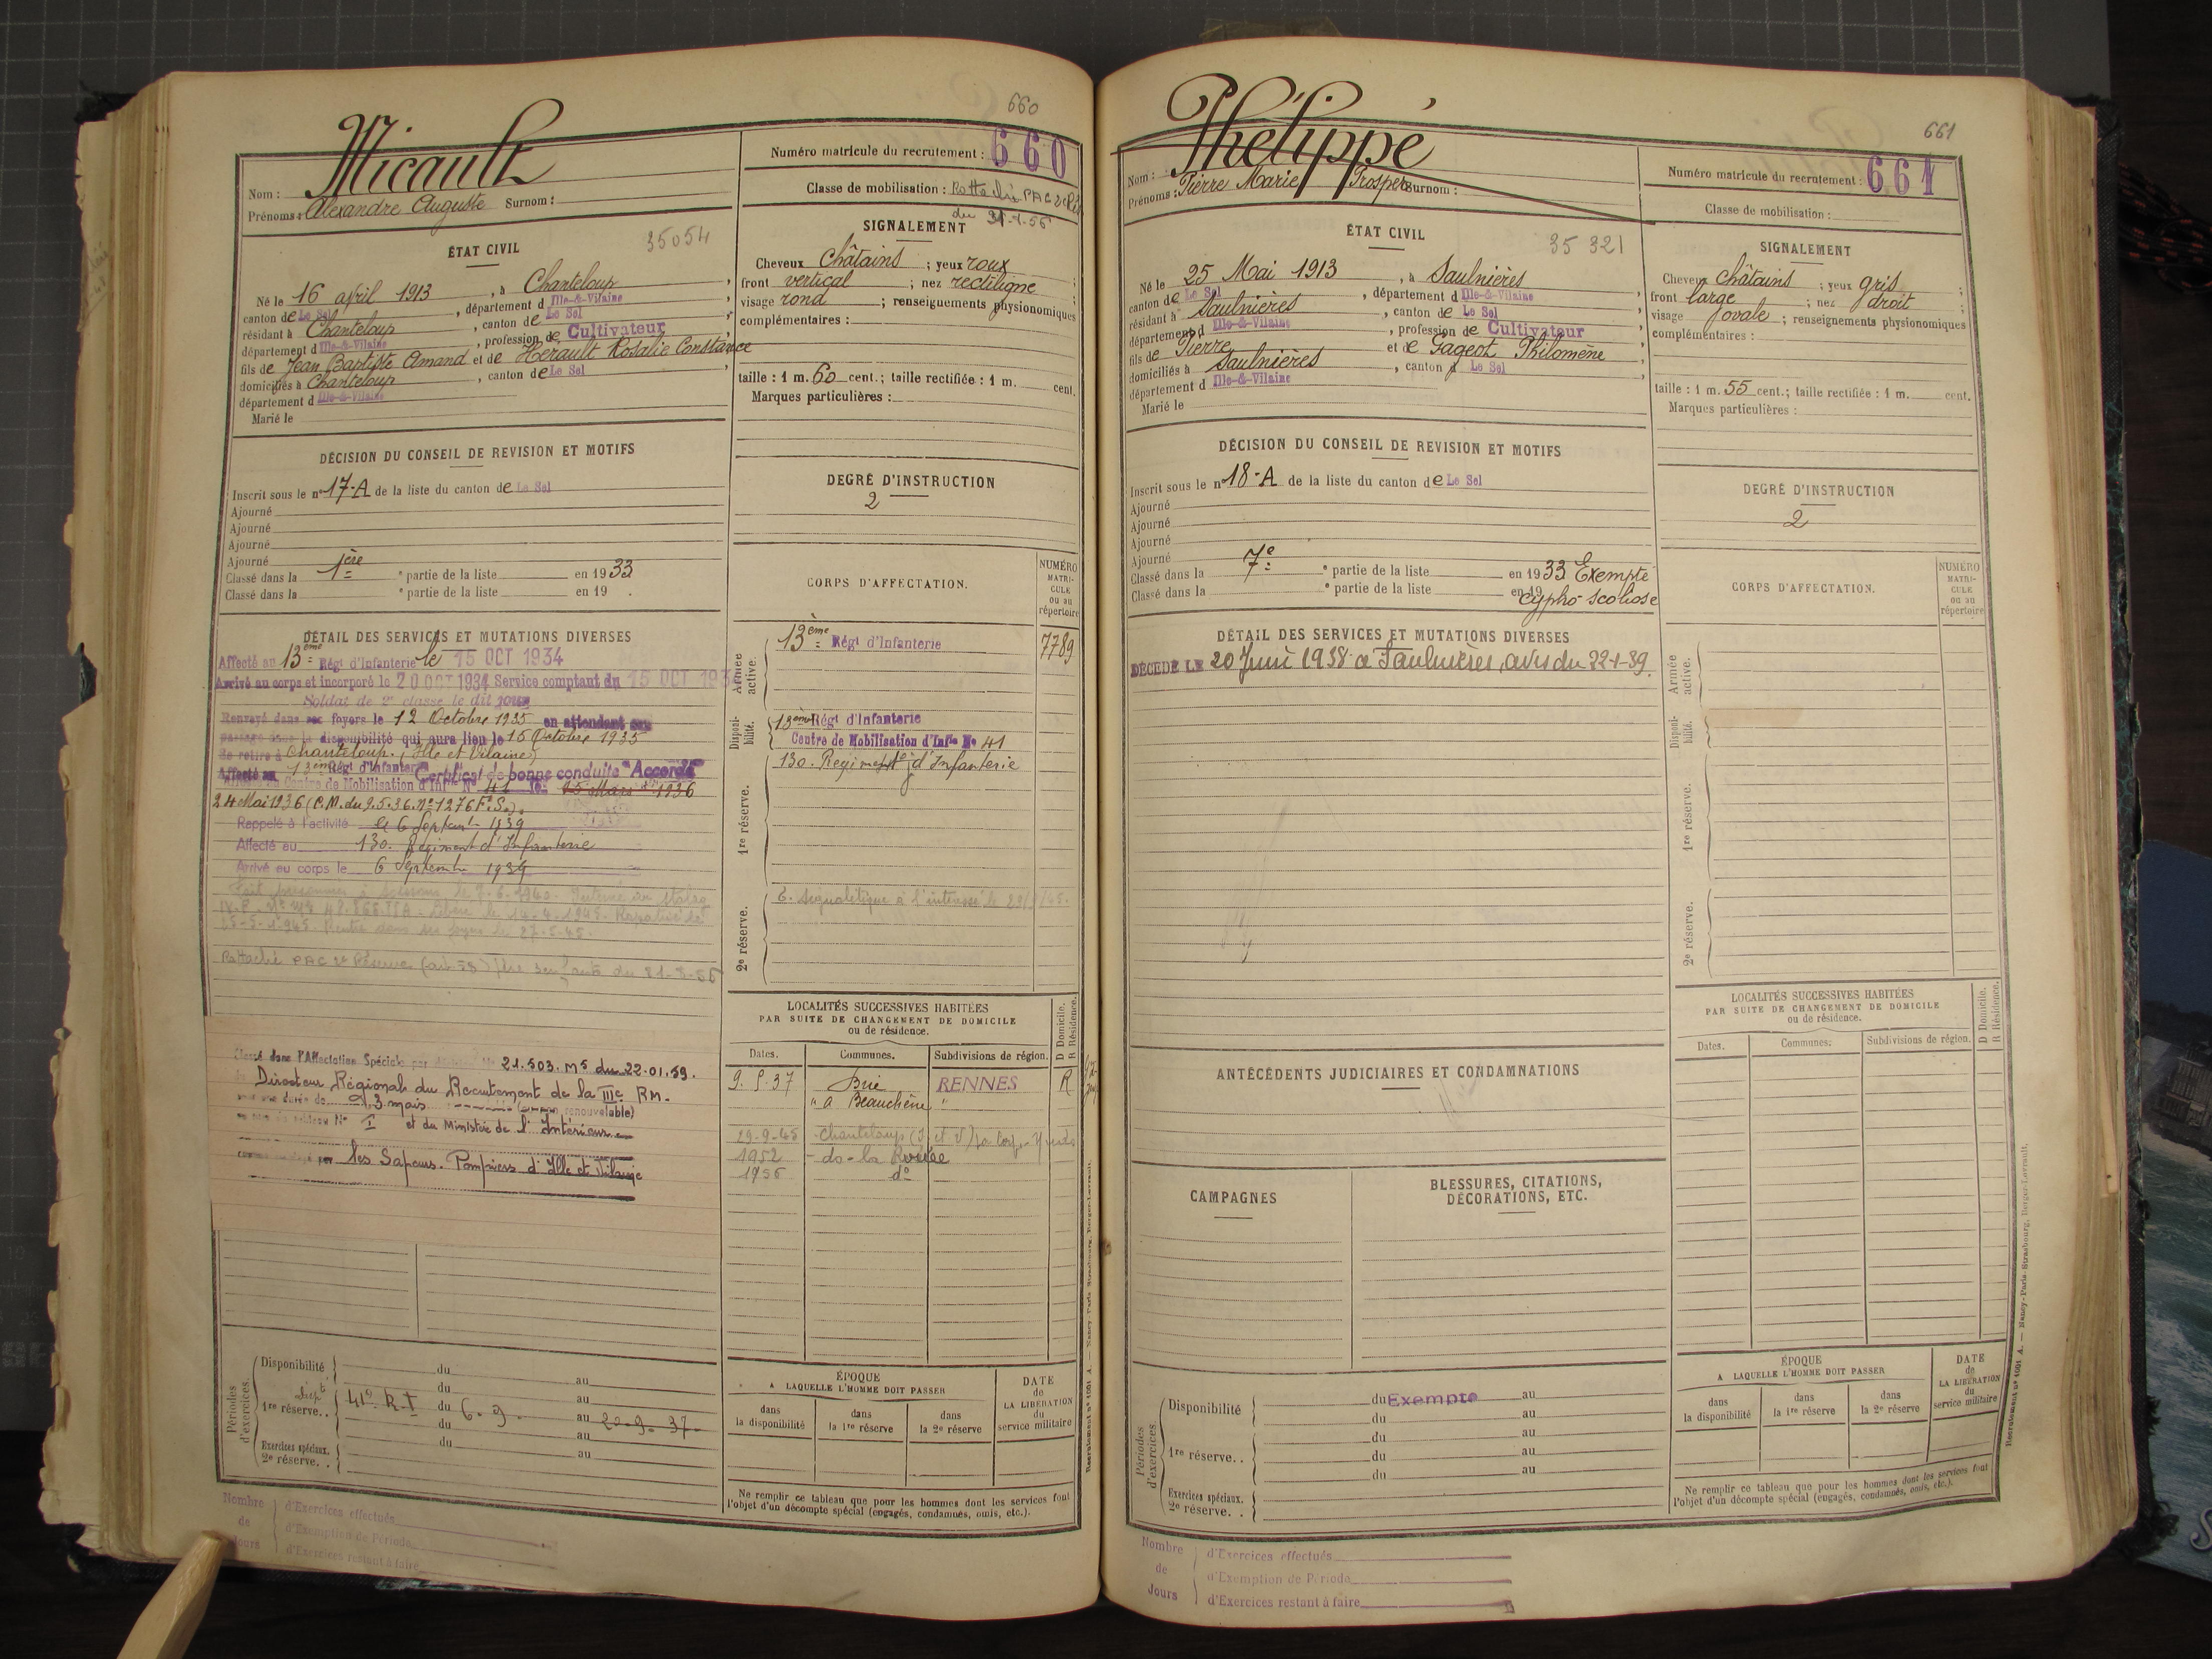 660
Micault
Nom :
Prénoms : Alexandre Auguste Surnom :
Numéro matricule du recrutement : 660
Classe de mobilisation : PAC
ÉTAT CIVIL
35054
Né le 16 avril 1913, à Chanteloup
canton de Le Sel, département d Ille-&-Vilaine
résidant à Chanteloup, canton de Le Sel
département d Ille-&-Vilaine, profession de Cultivateur
fils de Jean Baptiste Amand et de Herault Rosalie Constance
domiciliés à Chanteloup, canton de Le Sel
département d Ille-&-Vilaine
Marié le
SIGNALEMENT
Cheveux Châtains ; yeux roux ;
front vertical ; nez rectiligne ;
visage rond ; renseignements physionomiques
complémentaires :
taille : 1 m. 60 cent.; taille rectifiée : 1 m. cent.
Marques particulières :
DÉCISION DU CONSEIL DE REVISION ET MOTIFS
Inscrit sous le n° 17-A de la liste du canton de Le Sel
Ajourné
Ajourné
Ajourné
Ajourné
Classé dans la 1ère partie de la liste en 1933
Classé dans la partie de la liste en 19 .
DEGRÉ D'INSTRUCTION
2
DÉTAIL DES SERVICES ET MUTATIONS DIVERSES
Affecté au 13ème Régt d'Infanterie le 15 OCT 1934
Arrivé au corps et incorporé le 20 OCT 1934 Service comptant du 15 OCT 193
Soldat de 2e classe le dit jour
Renvoyé dans ses foyers le 12 Octobre 1935 en attendant son
passage dans la disponibilité qui aura lieu le 15 Octobre 1935
Se retire à Chanteloup. (Ille et Vilaine)
Affecté au 13ème Régt d'Infanterie Certificat de bonne conduite "Accordé"
Centre de Mobilisation d'Inf[ie] N° 41 le 15 Mars 1936
24 Mai 1936 (C.M. du 9.5.36. N° 1276 F.S.).
Rappelé à l'activité le 6 Septembre 1939
Affecté au 130. Régiment d'Infanterie
Arrivé au corps le 6 Septembre 1939
Fait prisonnier à Soissons le 8.6.1940. Interné au Stalag
Libéré le 14.4.1945. Rapatrié le
Rentré dans ses foyers le 27-5-45.
Rattaché PAC 2e Réserve
Classé dans l'Affectation Spéciale par 21.503. MS du 22.01.59.
Directeur Régional du Recrutement de la IIIe RM.
pour une durée de 3 mois renouvelable)
au titre du tableau N° I et du Ministère de l'Intérieur
comme employé par les Sapeurs-Pompiers d'Ille et Vilaine
CORPS D'AFFECTATION.
NUMÉRO MATRICULE ou au répertoire
Armée active.
13ème Régt d'Infanterie
7789
Disponibilité.
13ème Régt d'Infanterie
Centre de Mobilisation d'Infie N° 41
1re réserve.
130. Régiment d'Infanterie
2e réserve.
E. signalétique à l'intéressé le
LOCALITÉS SUCCESSIVES HABITÉES
PAR SUITE DE CHANGEMENT DE DOMICILE
ou de résidence.
D Domicile.
R Résidence.
Dates. Communes. Subdivisions de région.
9.5.37 Brie RENNES R
" à Beauchêne "
19-9-45 Chanteloup
1952 - do - la
1956 do
Périodes d'exercices.
Disponibilité du au
du au
1re réserve.. 41e R.I du 6.9. au 20-9-37-
du au
du au
Exercices spéciaux.
2e réserve. .
ÉPOQUE
A LAQUELLE L'HOMME DOIT PASSER
dans la disponibilité
dans la 1re réserve
dans la 2e réserve
DATE de LA LIBÉRATION du service militaire
Ne remplir ce tableau que pour les hommes dont les services font
l'objet d'un décompte spécial (engagés, condamnés, omis, etc.).
Nombre de Jours
d'Exercices effectués
d'Exemption de Période
d'Exercices restant à faire
661
Phélippé
Nom :
Prénoms : Pierre Marie Prosper Surnom :
Numéro matricule du recrutement : 661
Classe de mobilisation :
ÉTAT CIVIL
35 321
Né le 25 Mai 1913, à Saulnières
canton de Le Sel, département d Ille-&-Vilaine
résidant à Saulnières, canton de Le Sel
département d Ille-&-Vilaine, profession de Cultivateur
fils de Pierre et de Gageot Philomène
domiciliés à Saulnières, canton d Le Sel
département d Ille-&-Vilaine
Marié le
SIGNALEMENT
Cheveux châtains ; yeux gris ;
front large ; nez droit ;
visage ovale ; renseignements physionomiques
complémentaires :
taille : 1 m. 55 cent.; taille rectifiée : 1 m. cent.
Marques particulières :
DÉCISION DU CONSEIL DE REVISION ET MOTIFS
Inscrit sous le n° 18-A de la liste du canton de Le Sel
Ajourné
Ajourné
Ajourné
Ajourné
Classé dans la 7e partie de la liste en 1933 Exempté
Classé dans la partie de la liste en 19 cypho-scoliose
DEGRÉ D'INSTRUCTION
2
DÉTAIL DES SERVICES ET MUTATIONS DIVERSES
DÉCÉDÉ LE 20 Juin 1938 à Saulnières, avis du 22-1-39.
CORPS D'AFFECTATION.
NUMÉRO MATRICULE ou au répertoire
Armée active.
Disponibilité.
1re réserve.
2e réserve.
ANTÉCÉDENTS JUDICIAIRES ET CONDAMNATIONS
CAMPAGNES
BLESSURES, CITATIONS,
DÉCORATIONS, ETC.
LOCALITÉS SUCCESSIVES HABITÉES
PAR SUITE DE CHANGEMENT DE DOMICILE
ou de résidence.
D Domicile.
R Résidence.
Dates. Communes. Subdivisions de région.
Périodes d'exercices.
Disponibilité du Exempté au
du au
du au
1re réserve.. du au
du au
Exercices spéciaux.
2e réserve. .
ÉPOQUE
A LAQUELLE L'HOMME DOIT PASSER
dans la disponibilité
dans la 1re réserve
dans la 2e réserve
DATE de LA LIBÉRATION du service militaire
Ne remplir ce tableau que pour les hommes dont les services font
l'objet d'un décompte spécial (engagés, condamnés, omis, etc.).
Recrutement n° 1001 A. — Nancy-Paris-Strasbourg, Berger-Levrault.
Nombre de Jours
d'Exercices effectués
d'Exemption de Période
d'Exercices restant à faire